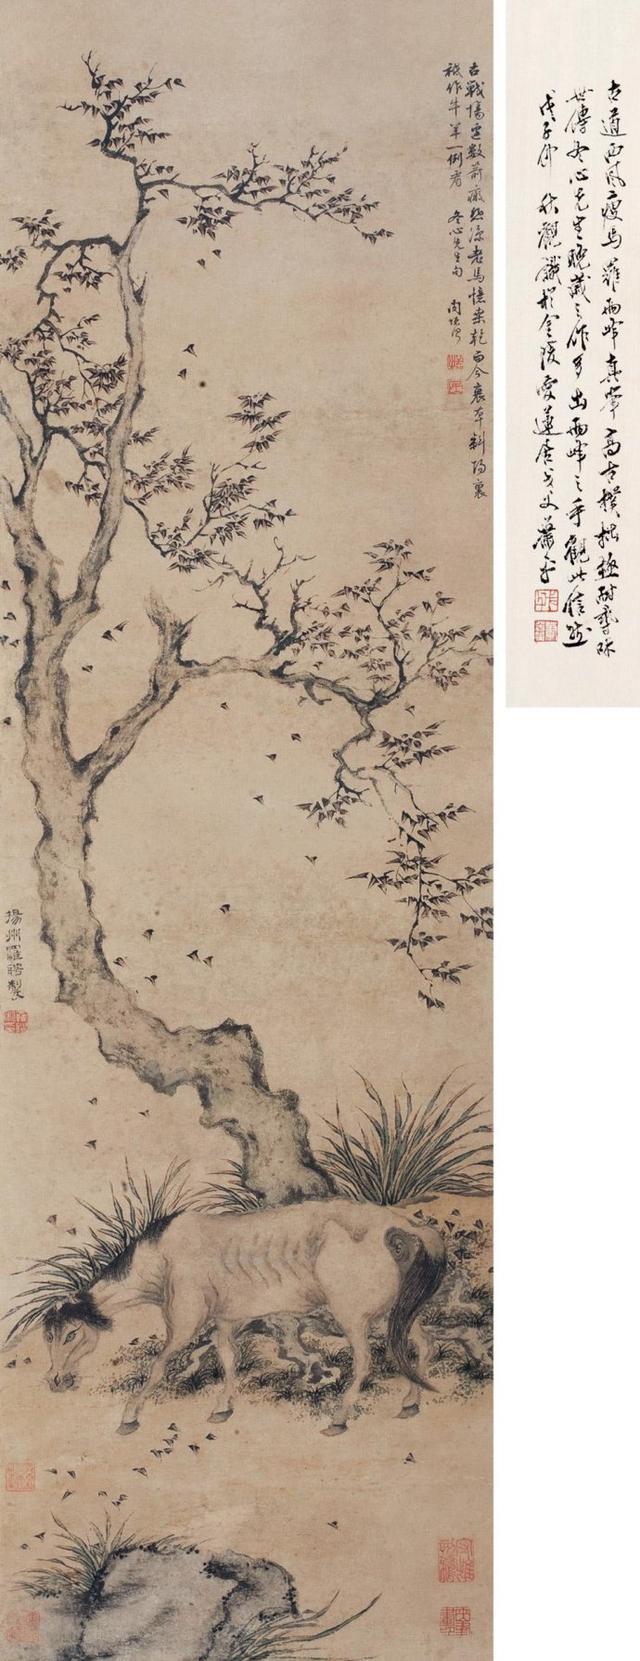 古戰場空數箭瘢悲涼老馬憶桑乾而今衰草斜陽裏
祇作牛羊一例看 冬心先生句
揚州羅聘製
古道西風瘦馬羅兩峰真筆高古樸拙極耐尋味
世傳冬心先生晚歲之作多出兩峰之手觀此信然
戊子仲秋觀識於金陵愛蓮居戈父蕭平